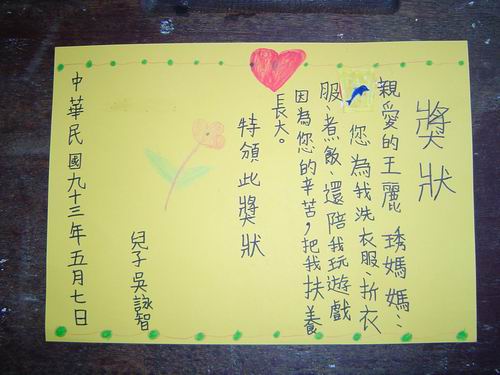 獎狀
親愛的王麗琇媽媽：
您為我洗衣服、折衣
服、煮飯、還陪我玩遊戲
因為您的辛苦，把我扶養
長大。
特頒此獎狀
兒子吳詠智
中華民國九十三年五月七日